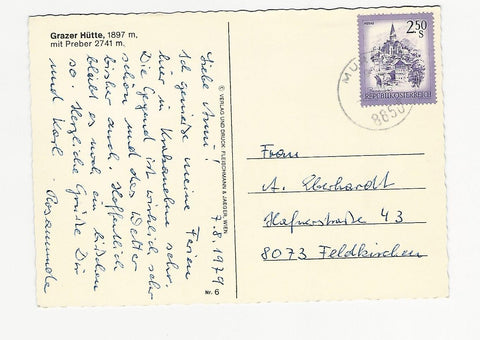 Grazer Hütte, 1897 m.
mit Preber 2741 m.
7.8.1979
Liebe Anni!
Ich genieße meine Ferien
hier in Krakauebene sehr.
Die Gegend ist wirklich sehr
schön und das Wetter
bisher auch. Hoffentlich
bleibt es noch ein bißchen
so. Herzliche Grüße Dir
und Karl. Rosamunde
© VERLAG UND DRUCK FLEISCHMANN & JAEGER, WIEN
Nr. 6
2.50
S
REPUBLIK ÖSTERREICH
MU
8850
Frau
A. Eberhardt
Hafnerstraße 43
8073 Feldkirchen